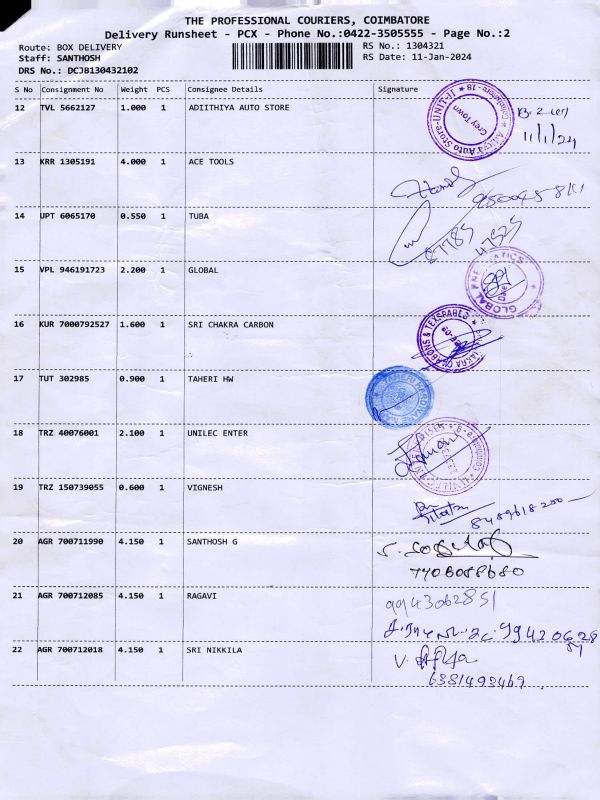 THE PROFESSIONAL COURIERS, COIMBATORE
Delivery Runsheet - PCX - Phone No.:0422-3505555 - Page No.:2
Route: BOX DELIVERY
RS No.: 1304321
Staff: SANTHOSH
RS Date: 11-Jan-2024
DRS No.: DCJB130432102
S No Consignment No Weight PCS Consignee Details Signature
12 TVL 5662127 1.000 1 ADIITHIYA AUTO STORE
11/1/24
13 KRR 1305191 4.000 1 ACE TOOLS
14 UPT 6065170 0.550 1 TUBA
15 VPL 946191723 2.200 1 GLOBAL
16 KUR 7000792527 1.600 1 SRI CHAKRA CARBON
17 TUT 302985 0.900 1 TAHERI HW
18 TRZ 40076001 2.100 1 UNILEC ENTER
19 TRZ 150739055 0.600 1 VIGNESH
8489618200
20 AGR 700711990 4.150 1 SANTHOSH G
7708088680
21 AGR 700712085 4.150 1 RAGAVI
9943062851
22 AGR 700712018 4.150 1 SRI NIKKILA
6381493469